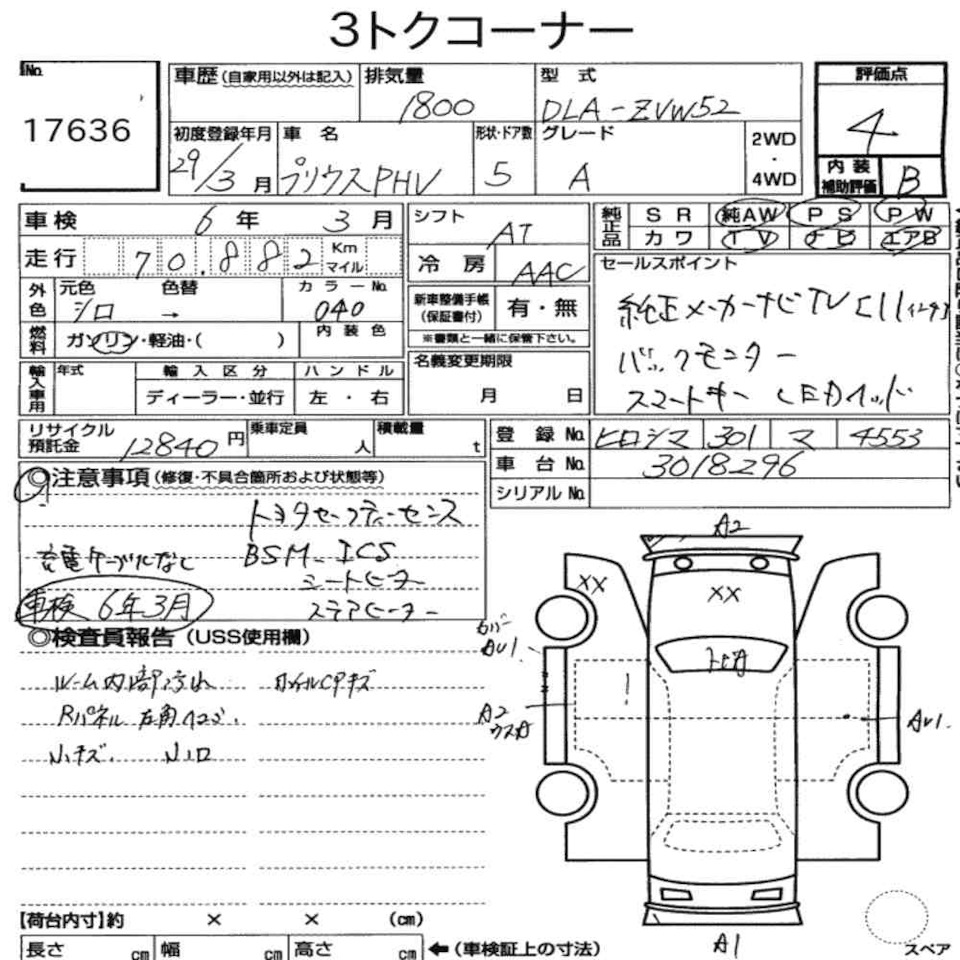 3トクコーナー
No. 17636
車歴(自家用以外は記入) 排気量 1800 型式 DLA-ZVW52
評価点 4
初度登録年月 29/3月 車名 プリウスPHV 形状・ドア数 5 グレード A 2WD・4WD
内装補助評価 B
車検 6年3月
シフト AT
純正品 SR 純AW PS PW
カワ TV ナビ エアB
走行 70.882 Km マイル
冷房 AAC
セールスポイント
外色 元色 シロ 色替 → カラーNo. 040
新車整備手帳(保証書付) 有・無
※書類と一緒に保管下さい。
純正メーカーナビTV (11インチ)
燃料 ガソリン・軽油・( ) 内装色
名義変更期限 月 日
バックモニター
輸入車用 年式 輸入区分 ハンドル
ディーラー・並行 左・右
スマートキー LEDヘッド
リサイクル預託金 12840円 乗車定員 人 積載量 t
登録No. ヒロシマ 301 マ 4553
車台No. 3018296
シリアルNo.
◎注意事項(修復・不具合箇所および状態等)
トヨタセーフティーセンス
充電ケーブルなし BSM ICS
シートヒーター
車検 6年3月 ステアヒーター
◎検査員報告(USS使用欄)
ルーム内部汚れ ホイルCPキズ
Rパネル 左角ヘコミ.
小キズ. 小凹
A2
XX
XX
トビA
カバー
AU1.
A2
ウスA
AU1.
A1
スペア
【荷台内寸】約 × × (cm)
長さ cm 幅 cm 高さ cm ←(車検証上の寸法)